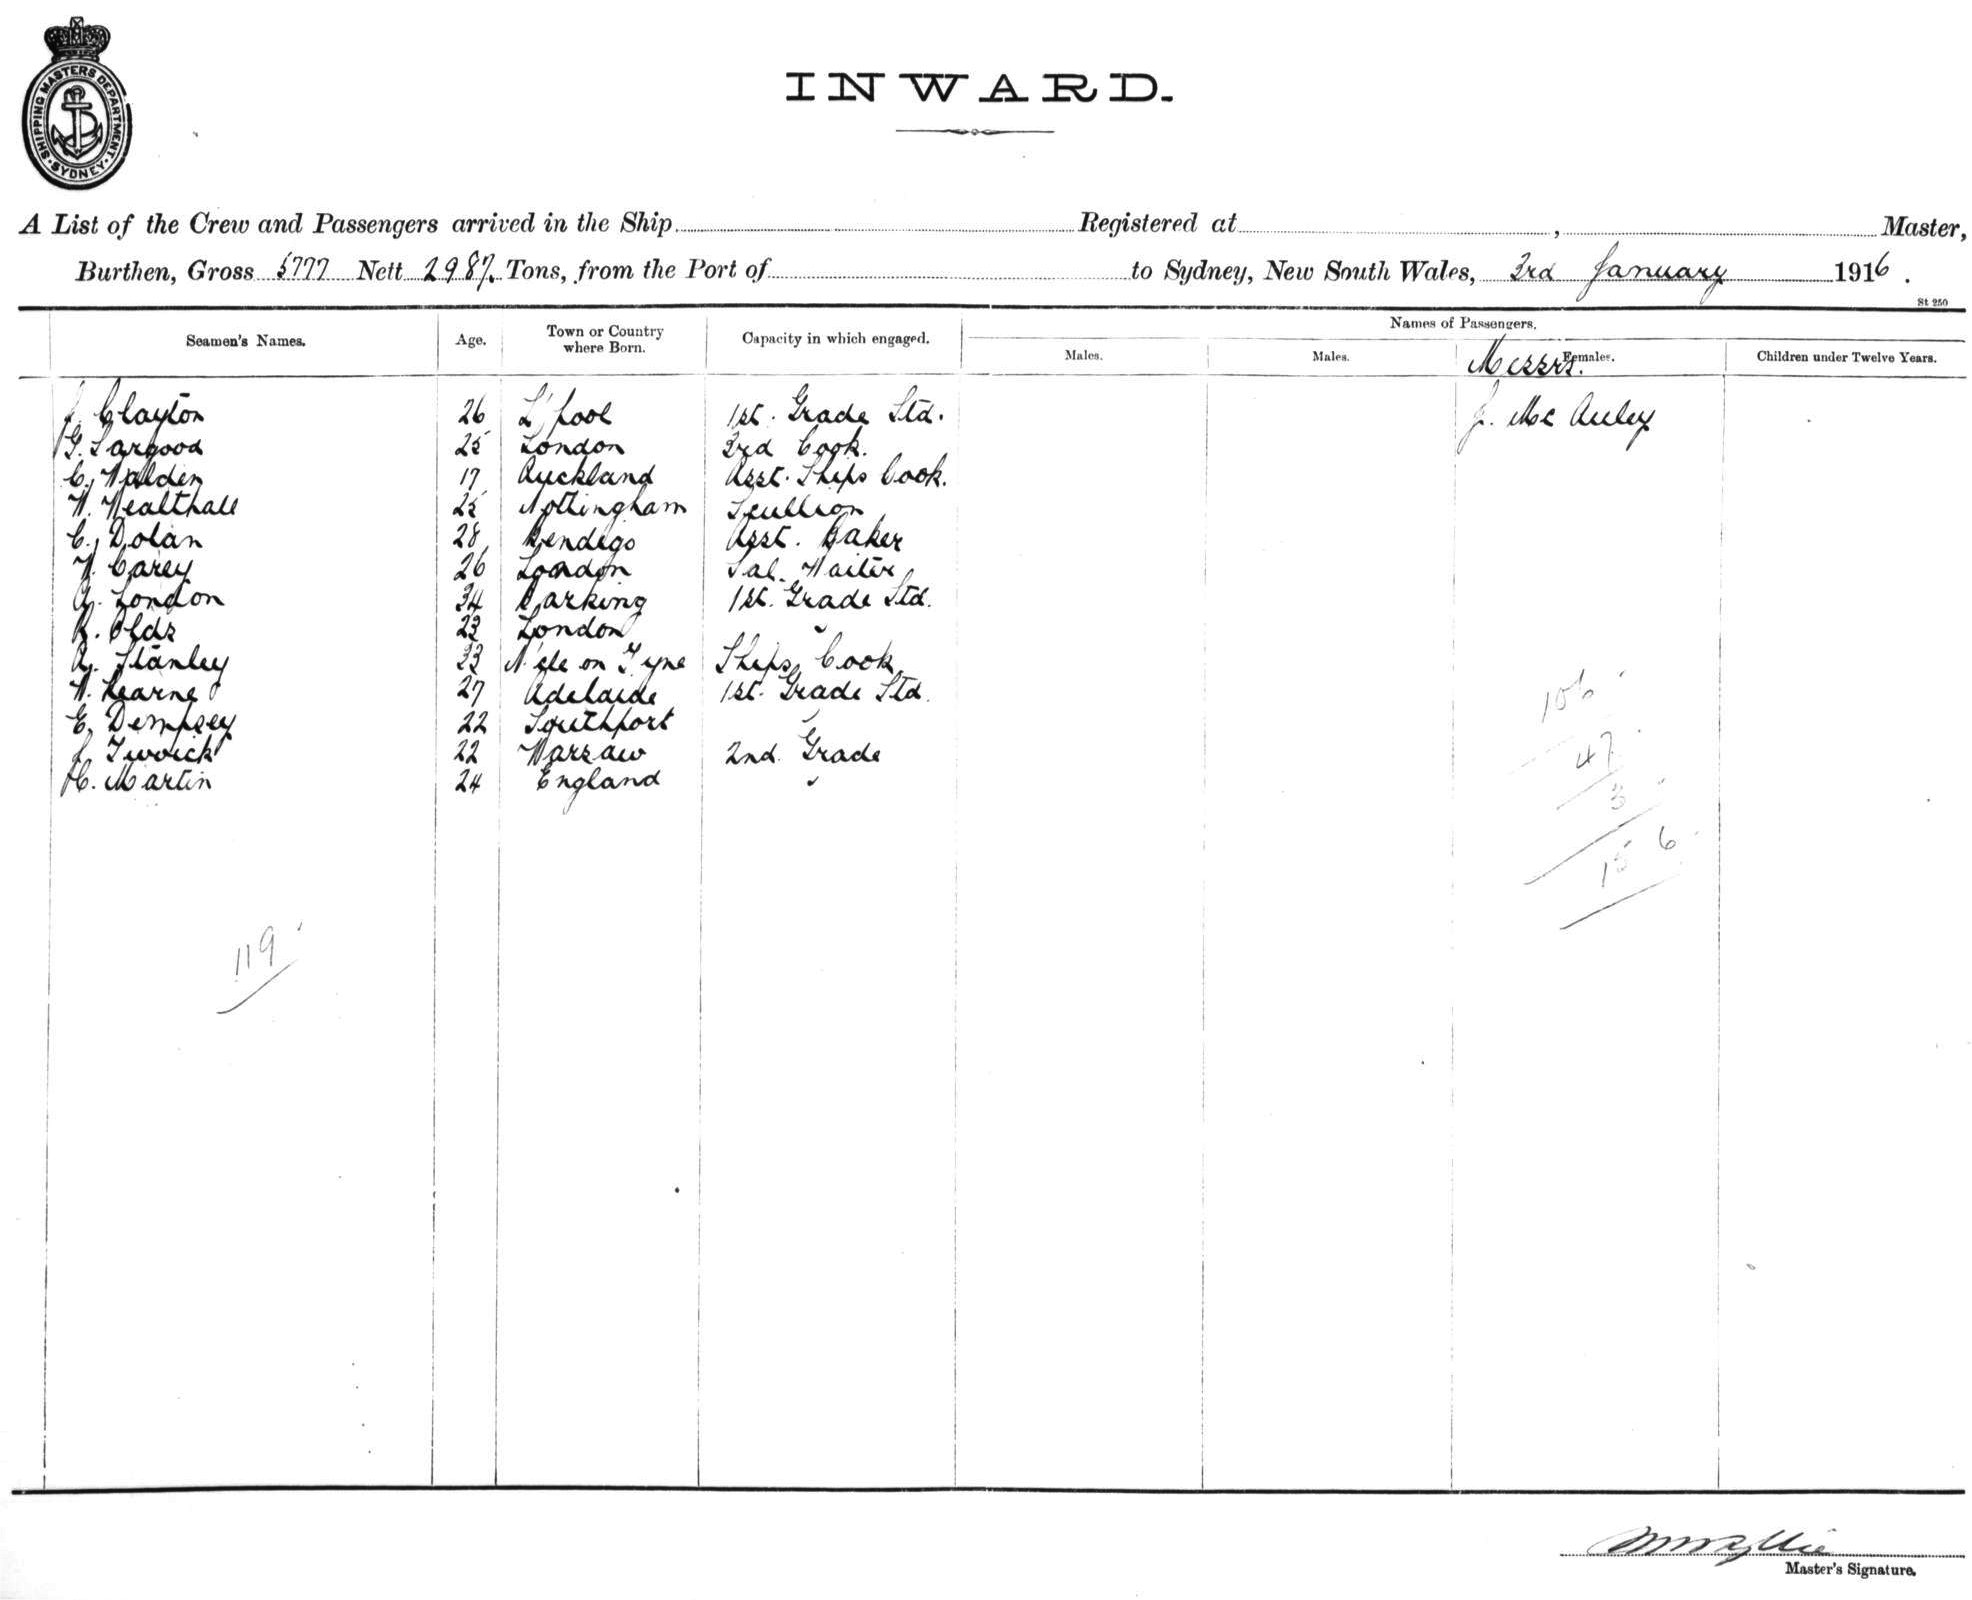 SHIPPING MASTERS DEPARTMENT · SYDNEY ·
INWARD.
A List of the Crew and Passengers arrived in the Ship Registered at , Master,
Burthen, Gross 5777 Nett 2987 Tons, from the Port of to Sydney, New South Wales, 3rd January 1916.
St 250
Seamen's Names. Age. Town or Country where Born. Capacity in which engaged. Names of Passengers.
Males. Males. Females. Children under Twelve Years.
Messrs.
J. Clayton 26 L'pool 1st. Grade Std. J. Mc Auley
G. Sargood 25 London 3rd Cook.
C. Walden 17 Auckland Asst. Ships Cook.
W. Wealthall 25 Nottingham Scullion
C. Dolan 28 Bendigo Asst. Baker
W. Carey 26 London Sal. Waiter
A. London 34 Barking 1st. Grade Std.
R. Olds 23 London "
A. Stanley 33 N'cle on Tyne Ships Cook
W. Kearne 27 Adelaide 1st. Grade Std.
E. Dempsey 22 Southport "
J. Twoick 22 Warsaw 2nd. Grade
H. Martin 24 England "
106
47
3
156
119
Master's Signature.